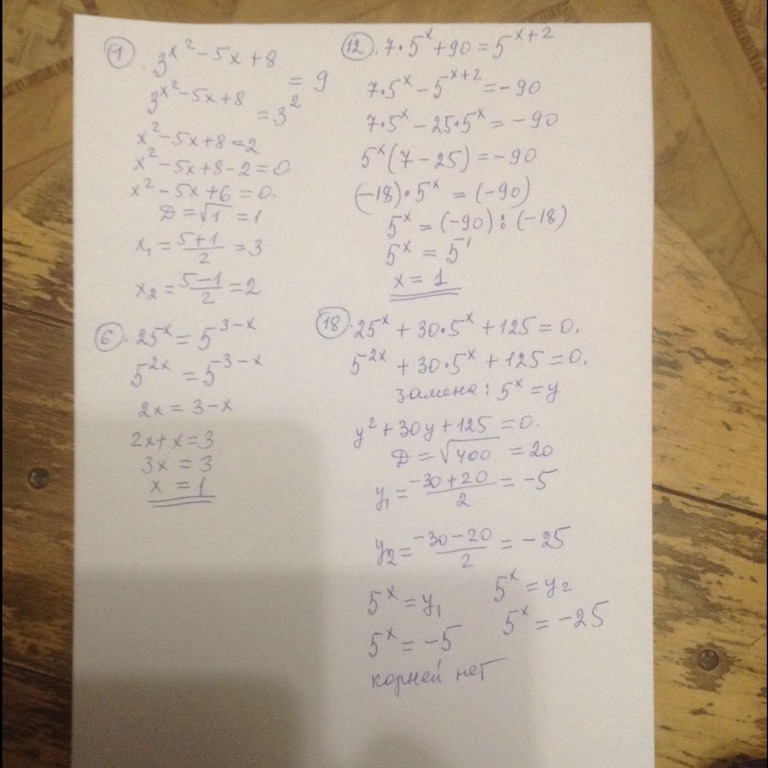 ① . 3^(x²-5x+8) = 9
3^(x²-5x+8) = 3²
x²-5x+8=2
x²-5x+8-2=0.
x²-5x+6=0.
D=√1=1
x₁=(5+1)/2=3
x₂=(5-1)/2=2
⑥. 25^x=5^(3-x)
5^(2x)=5^(3-x)
2x=3-x
2x+x=3
3x=3
x=1
⑫. 7•5^x+90=5^(x+2)
7•5^x-5^(x+2)=-90
7•5^x-25•5^x=-90
5^x(7-25)=-90
(-18)•5^x=(-90)
5^x=(-90):(-18)
5^x=5^1
x=1
⑱. 25^x+30•5^x+125=0.
5^(2x)+30•5^x+125=0.
замена: 5^x=y
y²+30y+125=0.
D=√400=20
y₁=(-30+20)/2=-5
y₂=(-30-20)/2=-25
5^x=y₁ 5^x=y₂
5^x=-5 5^x=-25
корней нет